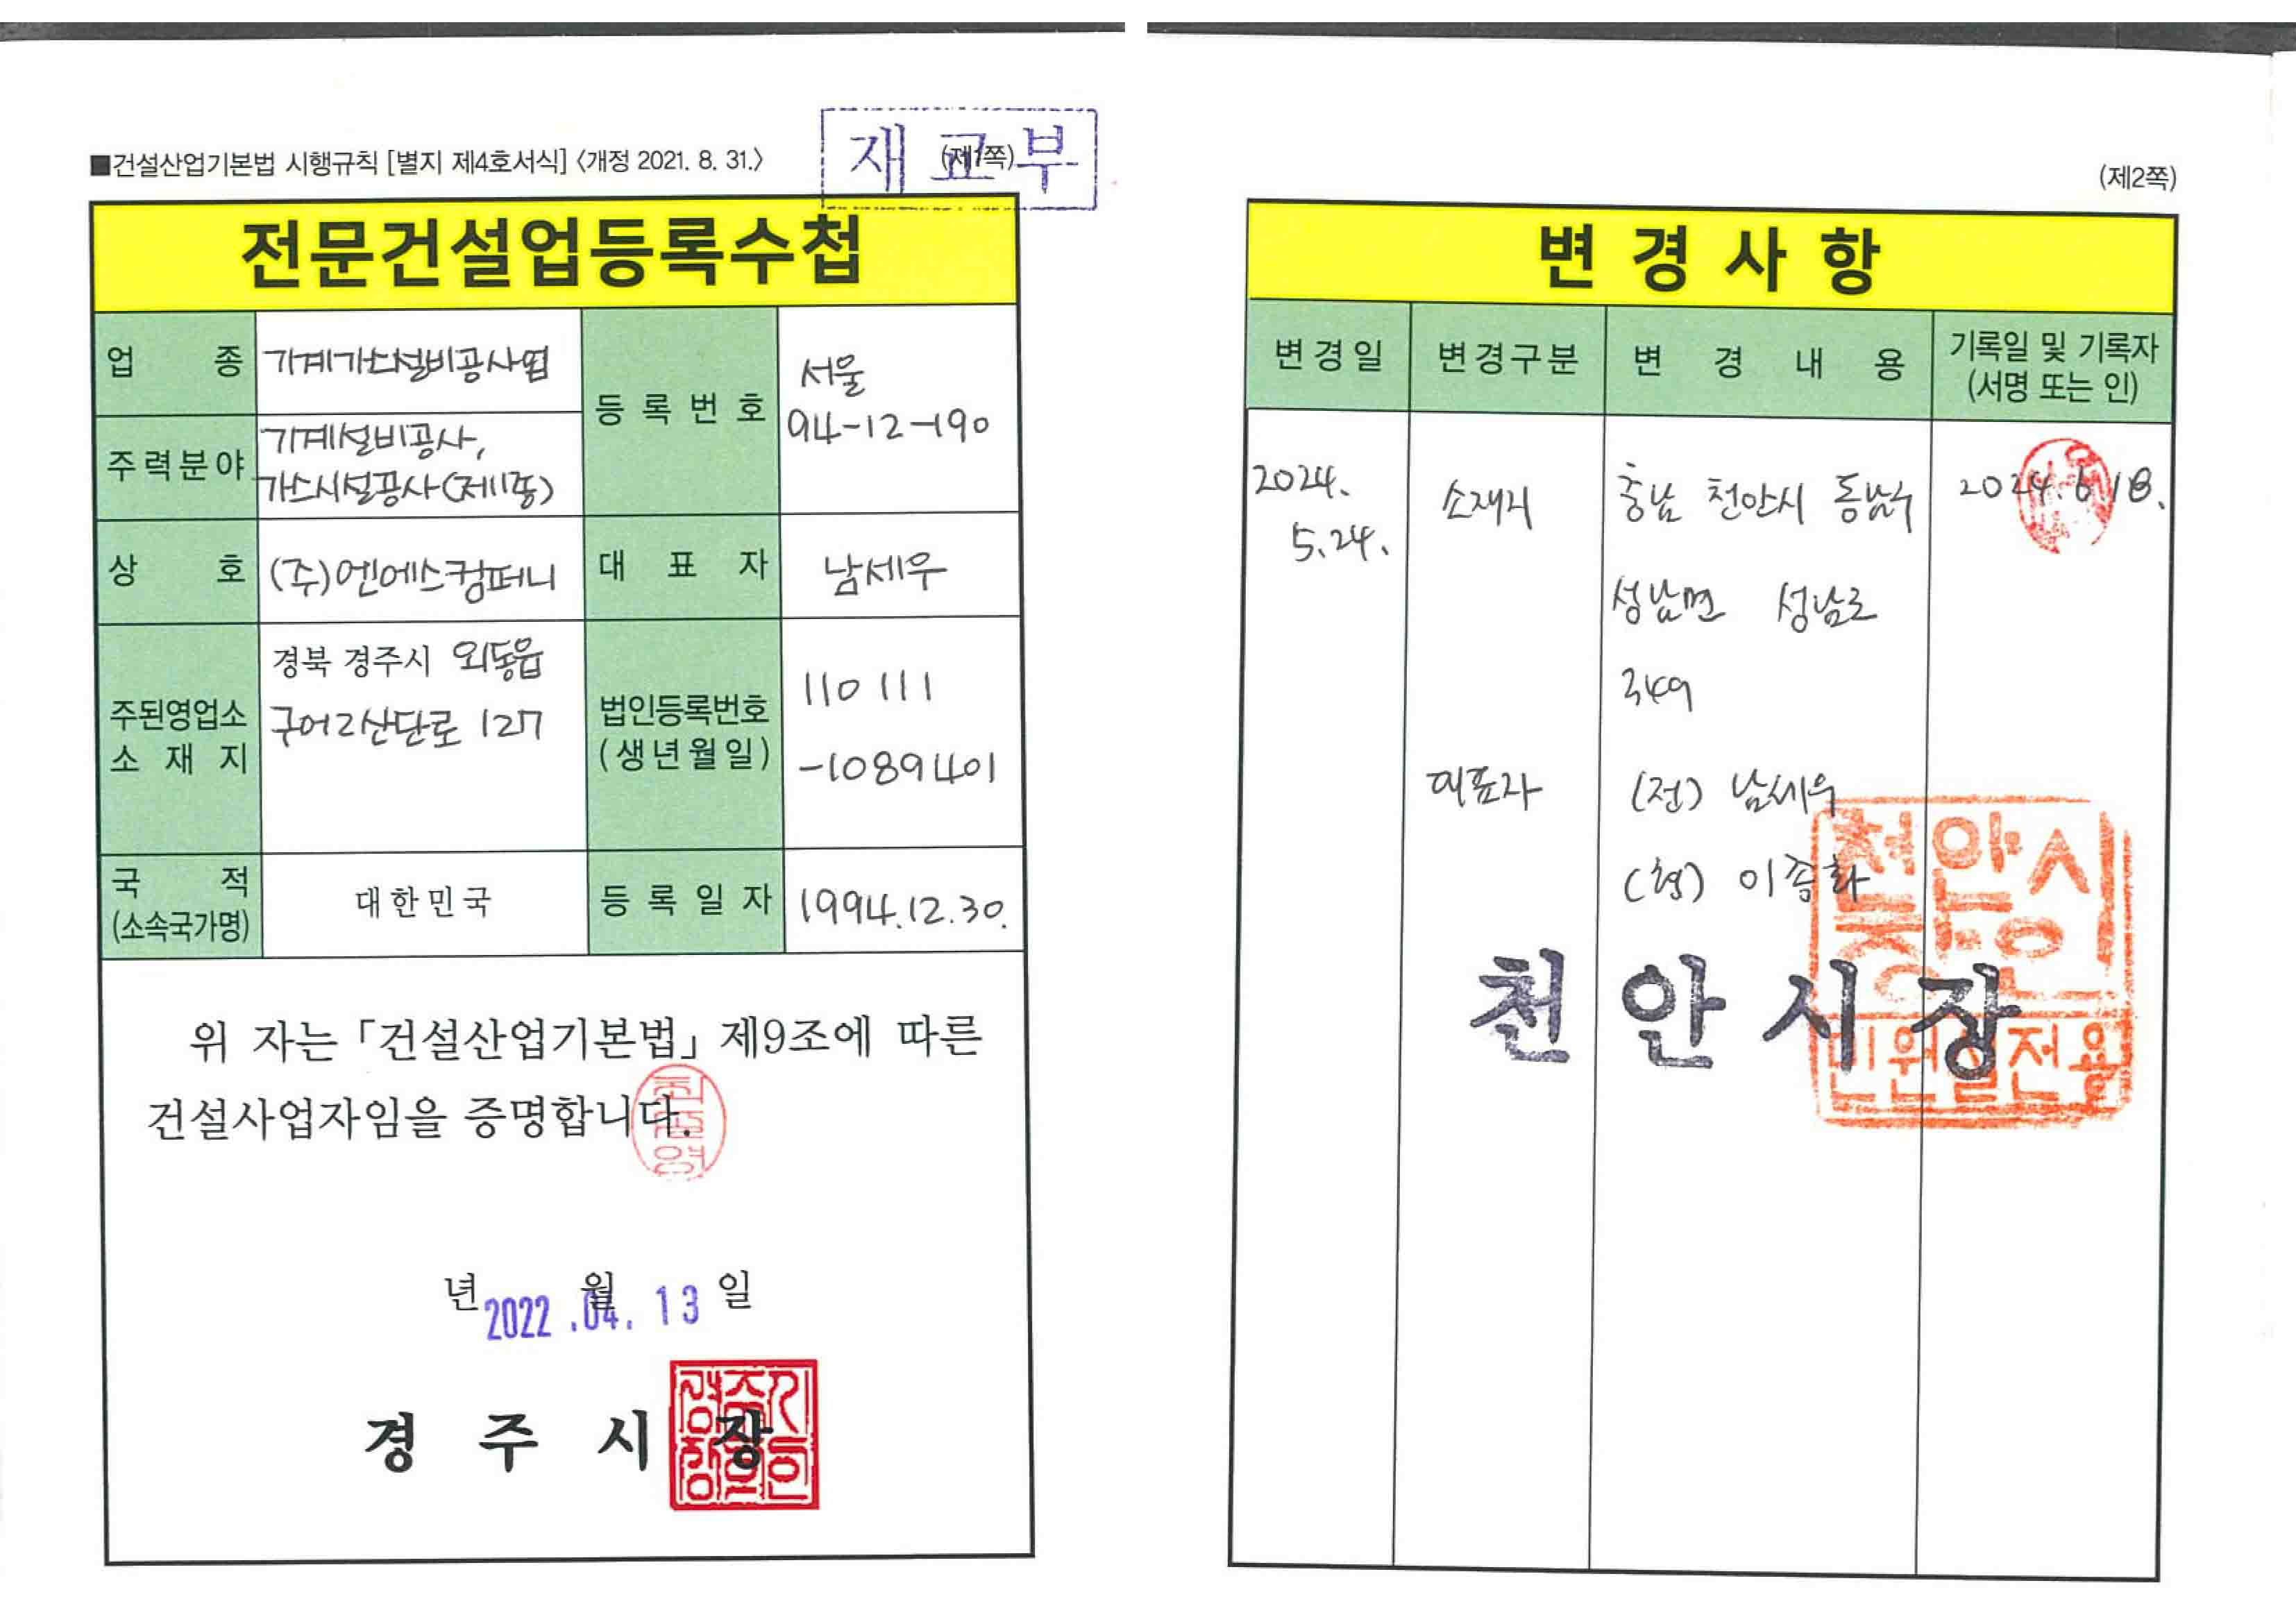 ■건설산업기본법 시행규칙 [별지 제4호서식] 〈개정 2021. 8. 31.〉
(제1쪽)
재교부
전문건설업등록수첩
업 종
기계가스설비공사업
등 록 번 호
서울
94-12-190
주력분야
기계설비공사,
가스시설공사(제1종)
상 호
(주)엔에스컴퍼니
대 표 자
남세우
주된영업소
소 재 지
경북 경주시 외동읍
구어2산단로 127
법인등록번호
(생년월일)
110111
-1089401
국 적
(소속국가명)
대한민국
등 록 일 자
1994.12.30.
위 자는 「건설산업기본법」 제9조에 따른
건설사업자임을 증명합니다.
년 월 일
2022.04.13
경 주 시 장
(제2쪽)
변 경 사 항
변경일
변경구분
변 경 내 용
기록일 및 기록자
(서명 또는 인)
2024.
5.24.
소재지
충남 천안시 동남구
성남면 성남로
349
2024.6.18.
대표자
(전) 남세우
(현) 이종화
천 안 시 장
천안시
민원실전용